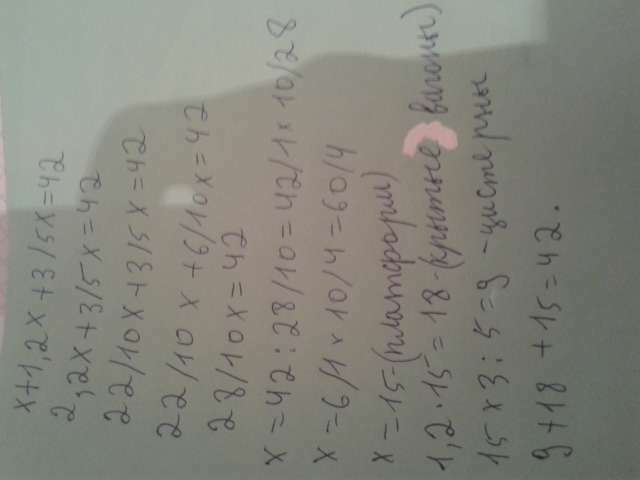 x+1,2x+3/5x=42
2,2x+3/5x=42
22/10x+3/5x=42
22/10 x+6/10x=42
28/10x=42
x=42:28/10=42/1×10/28
x=6/1×10/4=60/4
x=15-(платформ)
1,2·15=18-(крытые вагоны)
15×3:5=9 -цистерны
9+18+15=42.